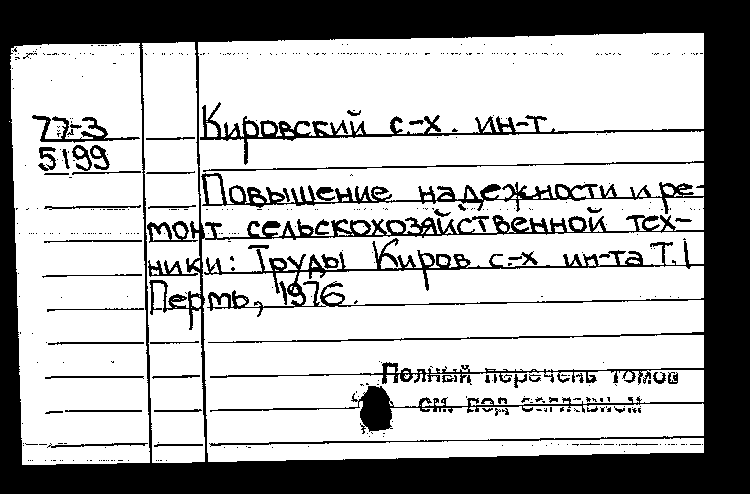 77-3
5199
Кировский с.-х. ин-т.
Повышение надежности и ре-
монт сельскохозяйственной тех-
ники: Труды Киров. с.-х ин-та Т. 1
Пермь, 1976.
Полный перечень томов
см. под заглавием